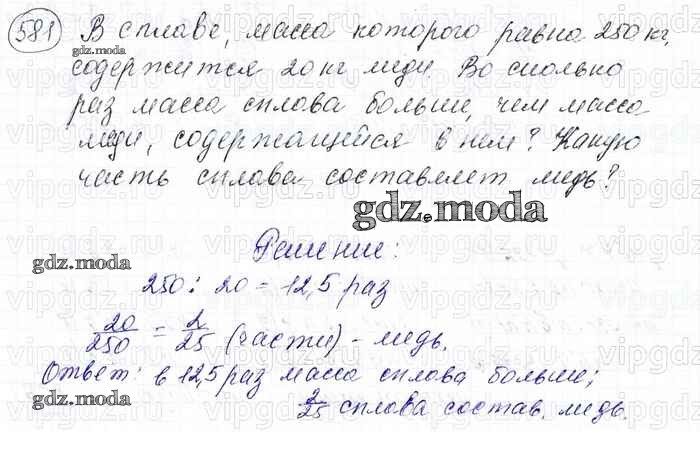 581 В сплаве, масса которого равна 250 кг,
gdz.moda
содержится 20 кг меди. Во сколько
раз масса сплова больше, чем масса
меди, содержащейся в нем? Какую
часть сплава составляет медь?
gdz.moda
Решение:
gdz.moda
250 : 20 = 12,5 раз
20/250 = 2/25 (части) - медь.
Ответ: в 12,5 раз масса сплова больше;
gdz.moda
2/25 сплова состав. медь.
gdz.moda